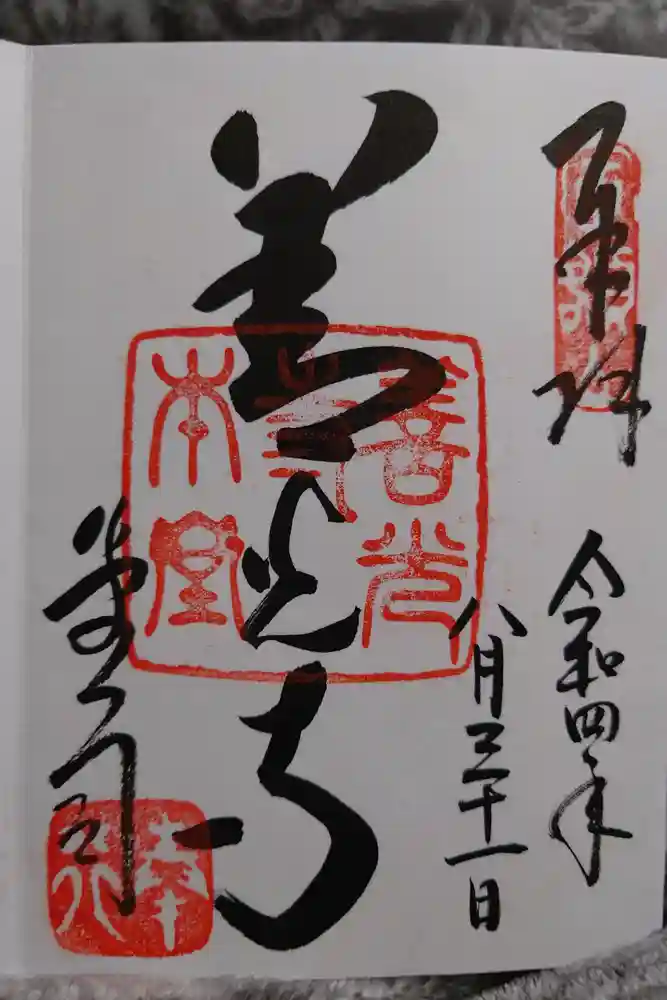 奉拝
令和四年
八月三十一日
善光寺
堂司
善光
寺
本堂
奉行